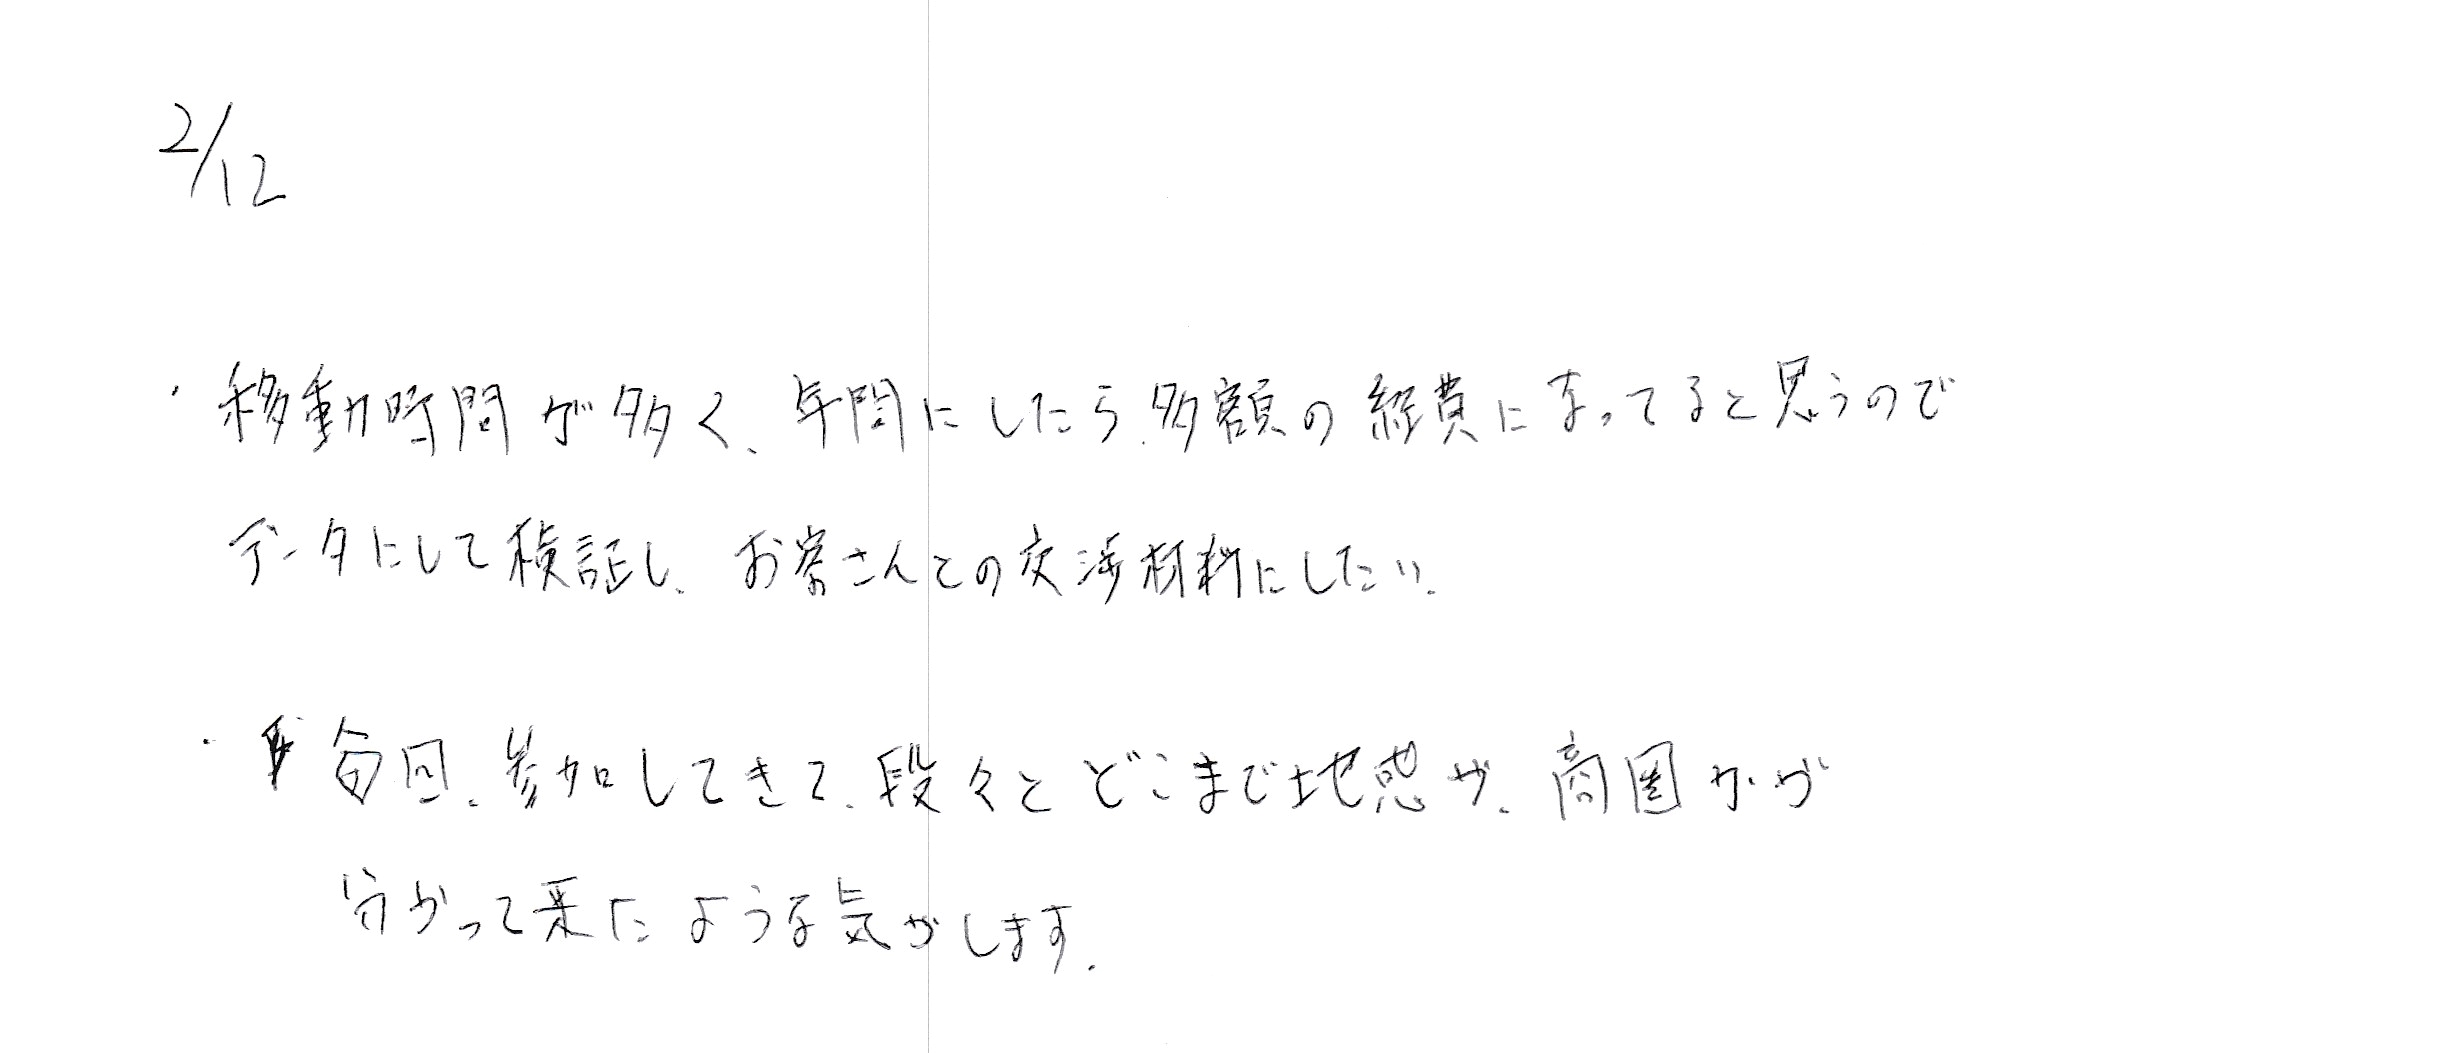 2/12
・移動時間が多く、年間にしたら多額の経費になってると思うので
データにして検証し、お客さんとの交渉材料にしたい。
・毎回、参加してきて、段々とどこまで地惑が、商圏かが
分かって来たような気がします。